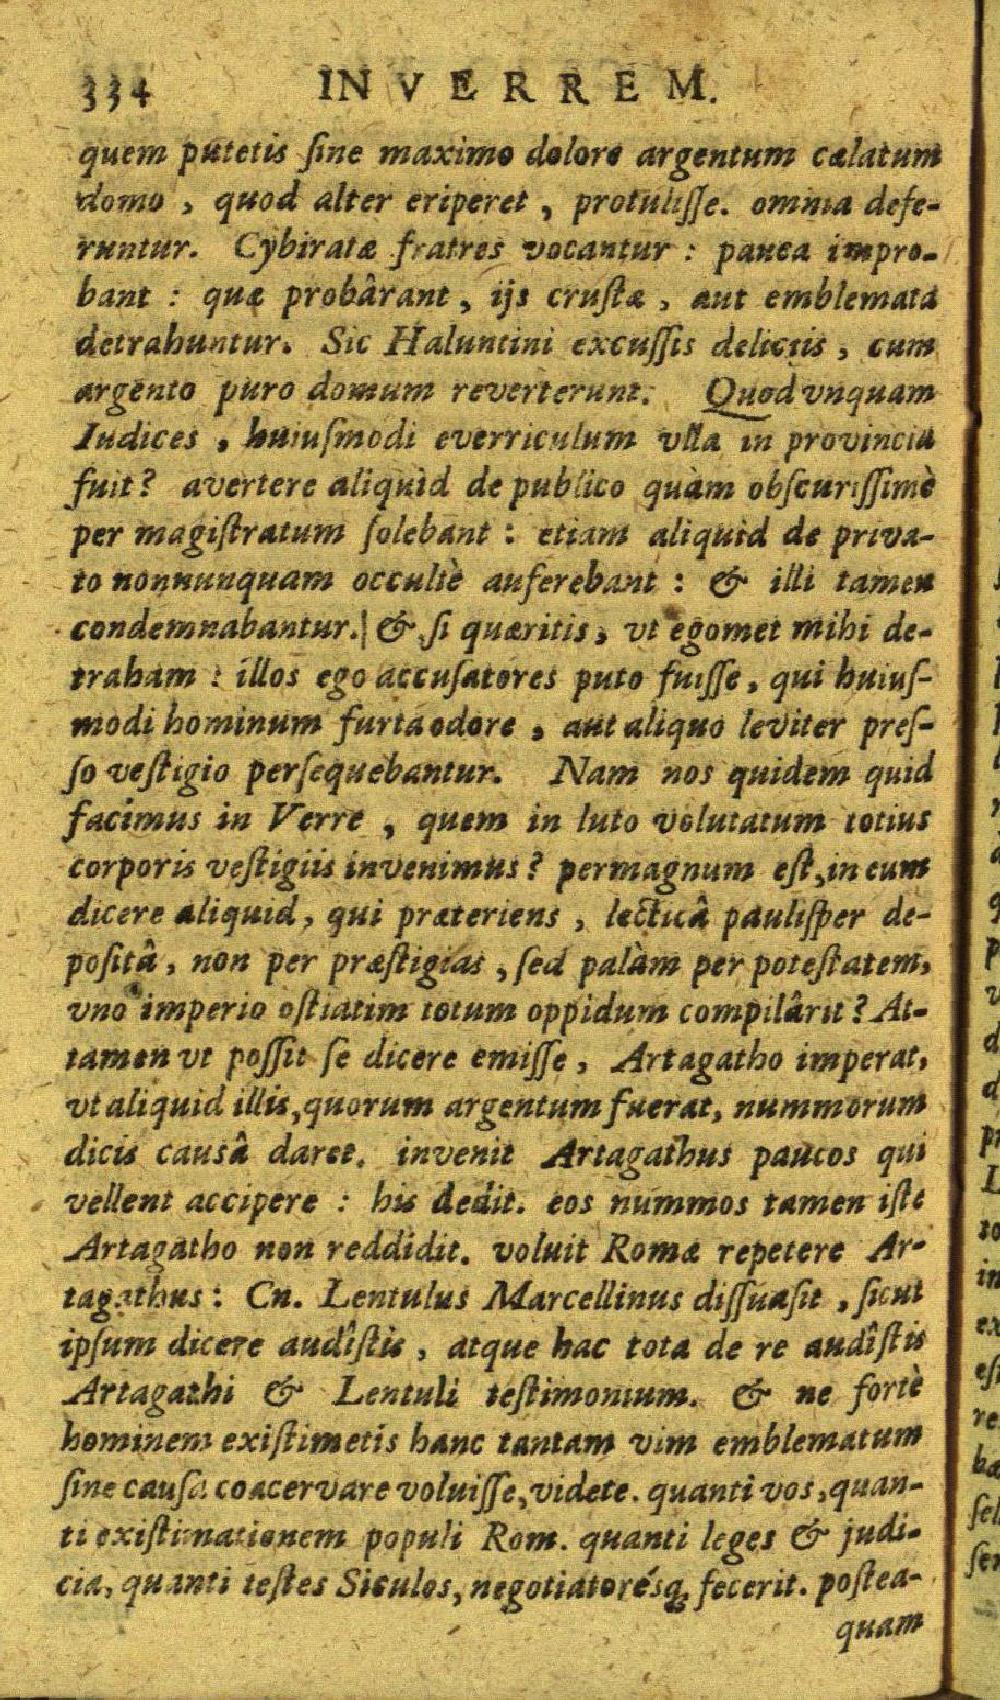 334 IN VERREM.
quem putetis ſine maximo dolore argentum cælatum
domo , quod alter eriperet , protuliſſe. omnia defe-
runtur. Cybiratæ fratres vocantur : pauca impro-
bant : quæ probârant , ijs cruſtæ , aut emblemata
detrahuntur. Sic Haluntini excuſſis deliciis , cum
argento puro domum reverterunt. Quod vnquam
Iudices , huiuſmodi everriculum vlla in provincia
fuit? avertere aliquid de publico quàm obſcuriſſimè
per magiſtratum ſolebant : etiam aliquid de priva-
to nonnunquam occultè auferebant : & illi tamen
condemnabantur.| & ſi quæritis, vt egomet mihi de-
traham : illos ego accuſatores puto fuiſſe , qui huiuſ-
modi hominum furta odore , aut aliquo leviter preſ-
ſo veſtigio perſequebantur. Nam nos quidem quid
facimus in Verre , quem in luto volutatum totius
corporis veſtigiis invenimus? permagnum eſt, in eum
dicere aliquid, qui præteriens , lecticâ pauliſper de-
poſitâ, non per præſtigias , ſed palàm per poteſtatem,
vno imperio oſtiatim totum oppidum compilârit? At-
tamen vt poſſit ſe dicere emiſſe , Artagatho imperat,
vt aliquid illis, quorum argentum fuerat, nummorum
dicis causâ daret. invenit Artagathus paucos qui
vellent accipere : his dedit. eos nummos tamen iſte
Artagatho non reddidit. voluit Romæ repetere Ar-
tagathus: Cn. Lentulus Marcellinus diſſuaſit , ſicut
ipſum dicere audîſtis , atque hac tota de re audîſtis
Artagathi & Lentuli teſtimonium. & ne fortè
hominem exiſtimetis hanc tantam vim emblematum
ſine cauſa coacervare voluiſſe, videte. quanti vos, quan-
ti exiſtimationem populi Rom. quanti leges & judi-
cia, quanti teſtes Siculos, negotiatorésq; fecerit. poſtea-
quam